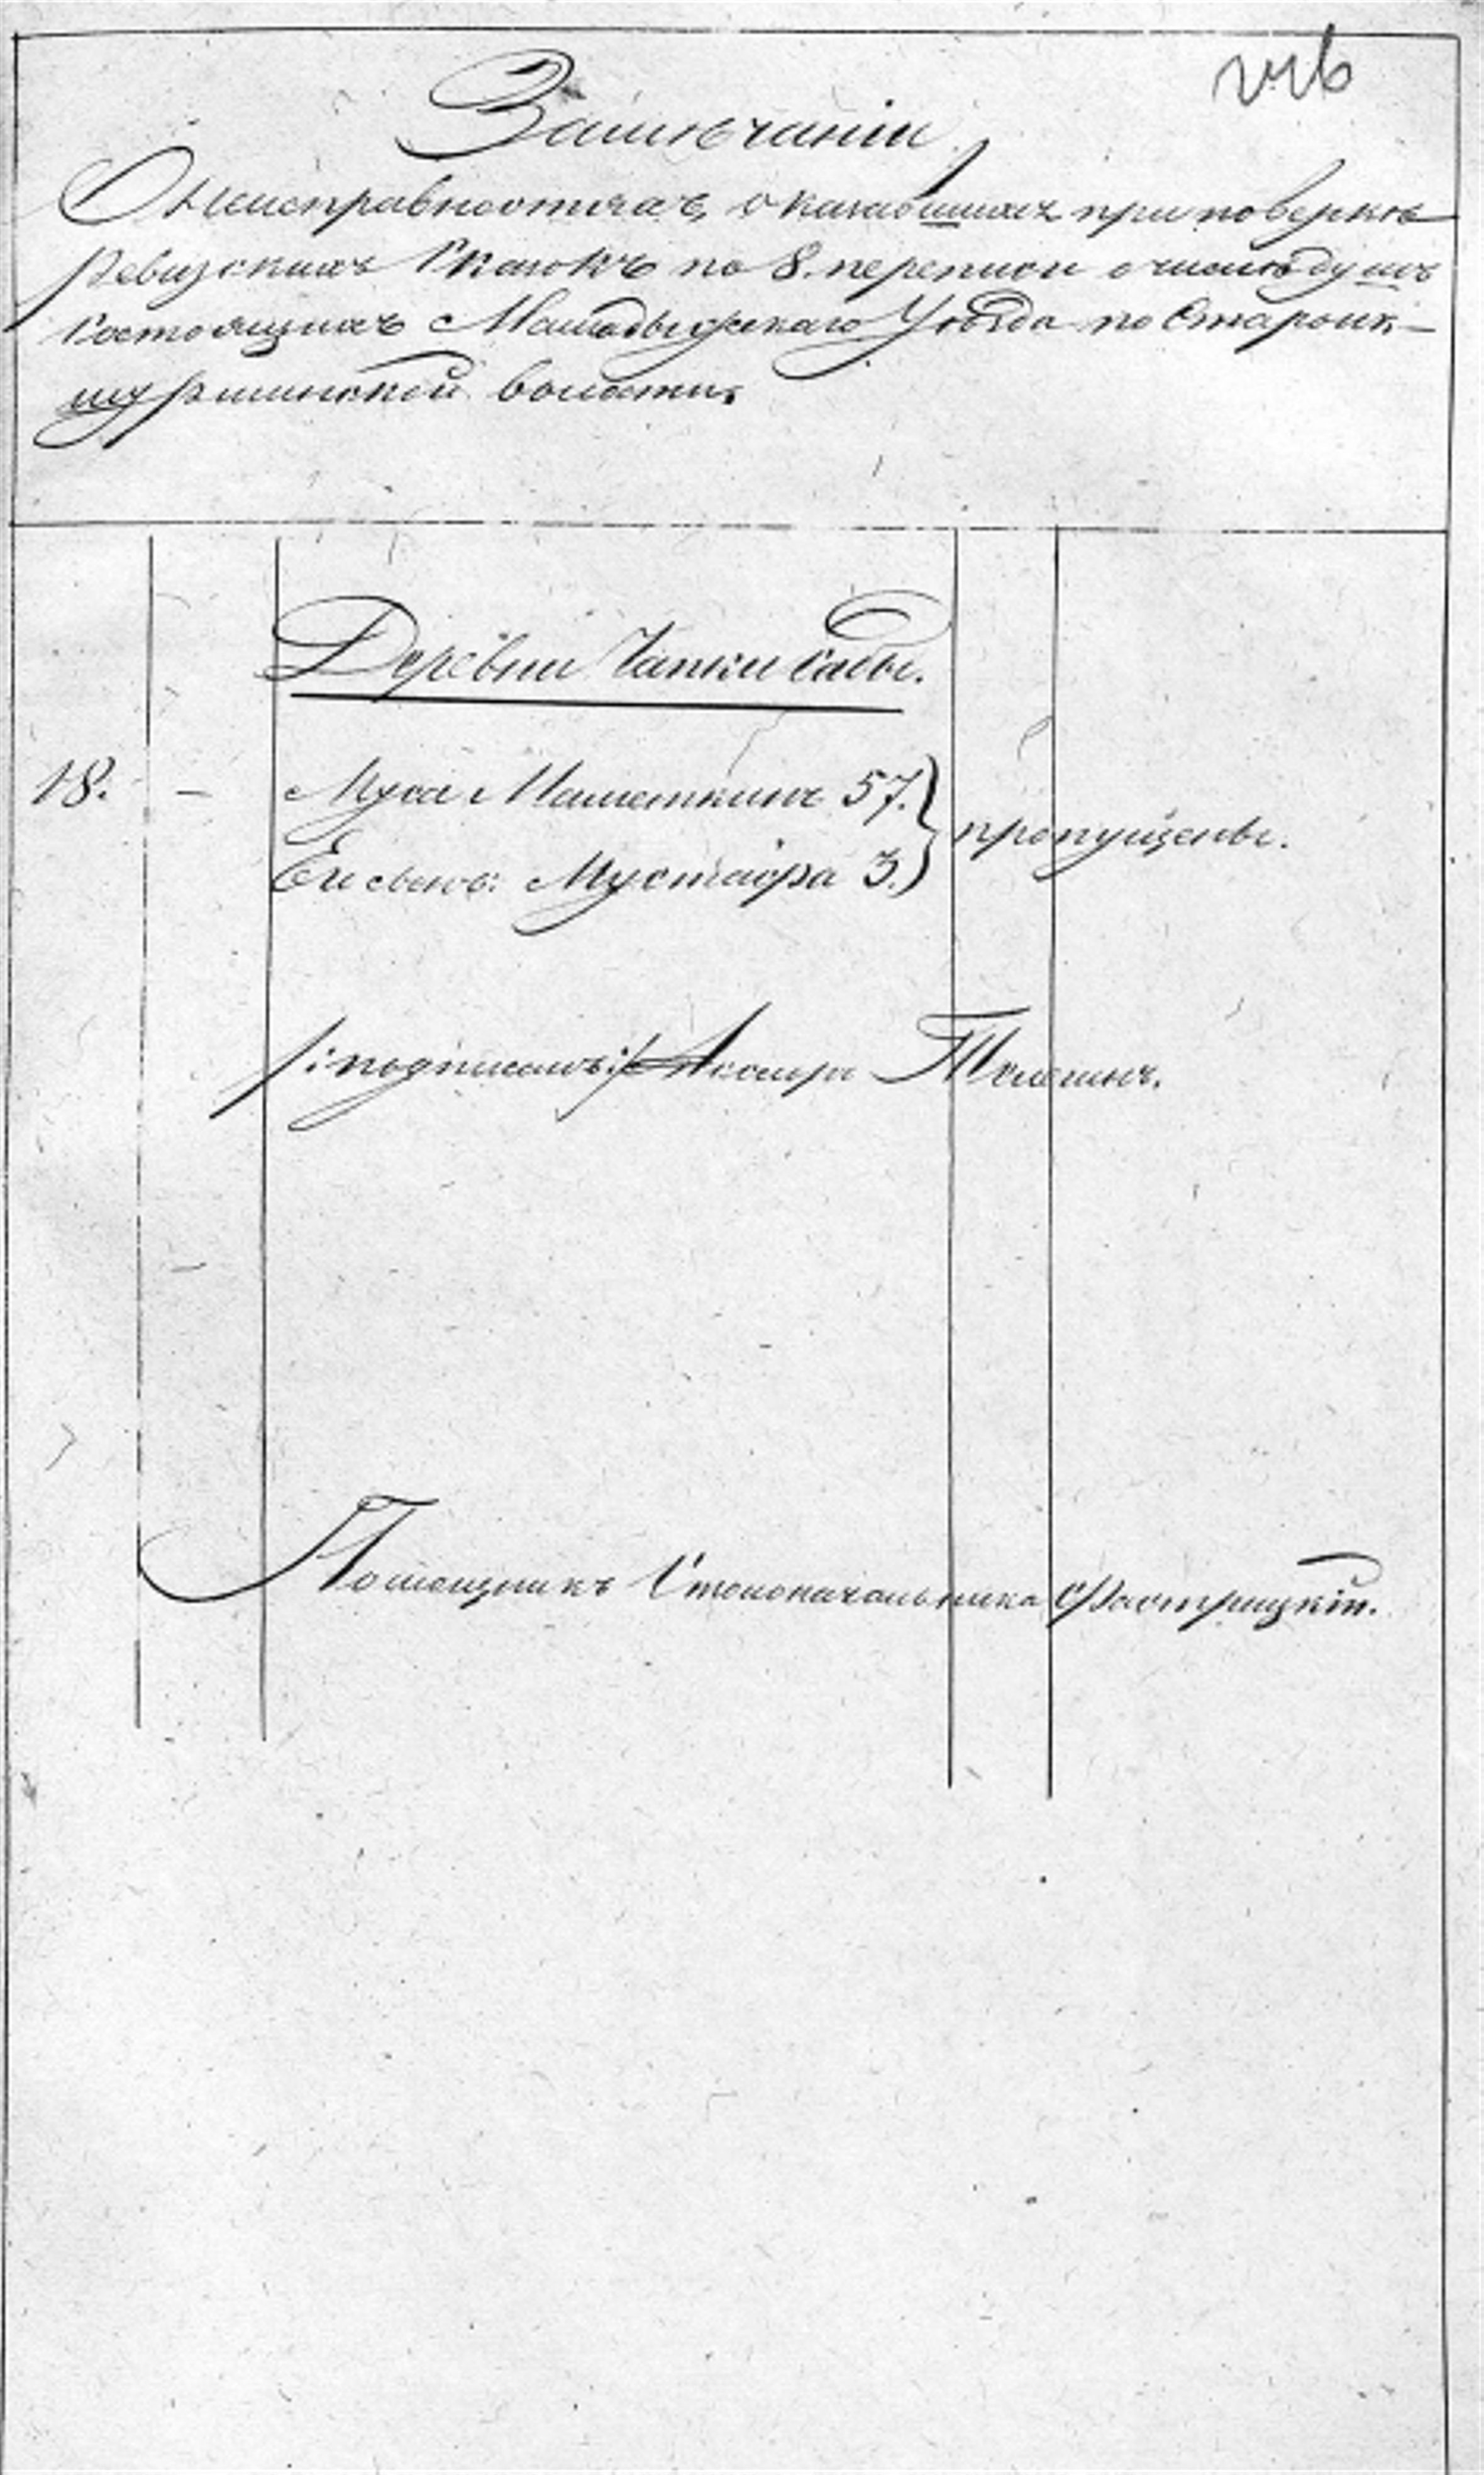 Замѣчаніи
О неисправностяхъ, оказавшихся при повѣркѣ
ревизскихъ сказокъ по 8. переписи о числѣ душъ
состоящихъ Мамадышскаго Уѣзда по Староик-
шурминской волости.
Деревни Чапки Сабы.
18. – Муса Маметкинъ 57.
Его сынъ: Мустафа 3. } пропущены.
/:подписалъ:/
Помощникъ Столоначальника